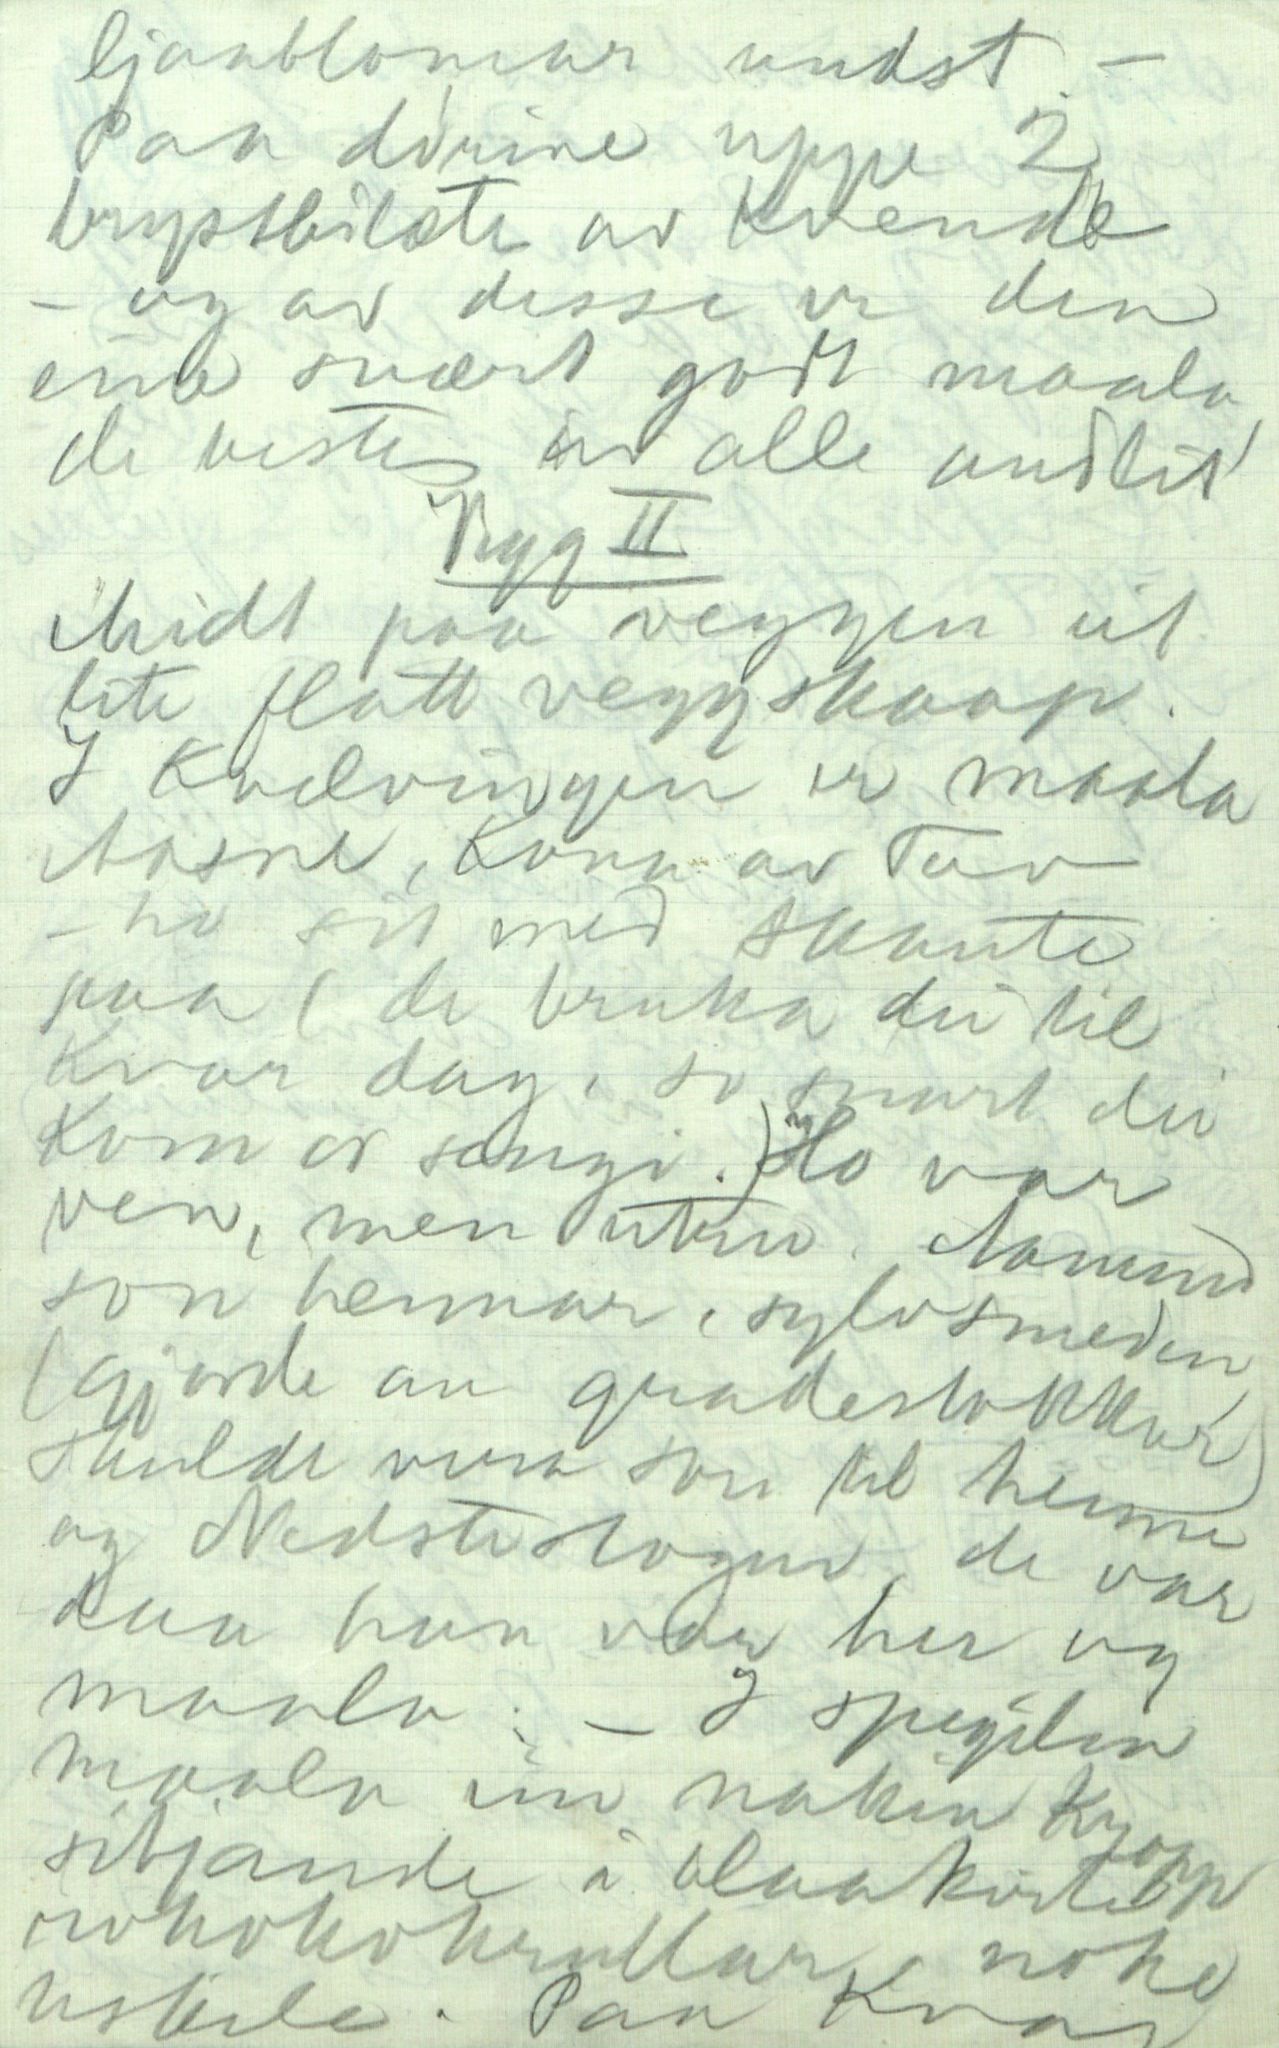 ljaablomar undst. –
Paa dörine uppe 2
brystbilæte av Kvende
– og av desse er den
eine svært godt maala
de beste av alle andlit
Vegg II
Midt paa veggen eit
lite flatt veggskaap.
I Kvelvingen er maala
Aasne, Kona av Tuv
– ho sit med skaute
paa (de bruka dei til
Kvar dag, so snart dei
kom or sengi.) Ho var
ven, men utru. Aamund
son hennar, sylvsmeden,
(gjorde au gradestokkar)
skulde vera son til henne
og Nedstestogur, de var
daa han var her og
maala. – I spegilen
maala ein naken Kropp
sitjande i blaa
rokokokrullar, noke
uskile. Paa Kvar